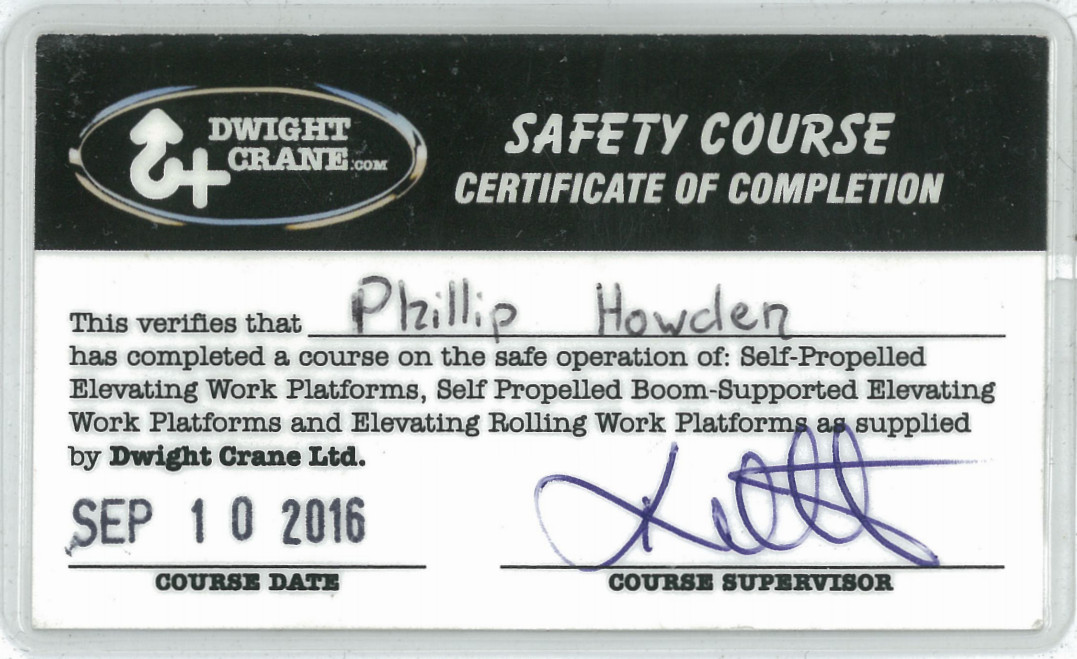 DWIGHT
CRANE.COM
SAFETY COURSE
CERTIFICATE OF COMPLETION
This verifies that Phillip Howden
has completed a course on the safe operation of: Self-Propelled
Elevating Work Platforms, Self Propelled Boom-Supported Elevating
Work Platforms and Elevating Rolling Work Platforms as supplied
by Dwight Crane Ltd.
SEP 10 2016
COURSE DATE
COURSE SUPERVISOR